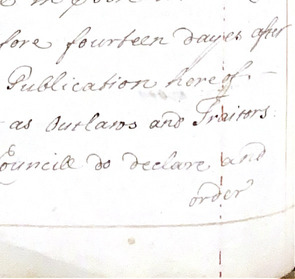 fore fourteen dayes after
Publication hereof
as Outlaws and Traitors
Councill do declare and
order